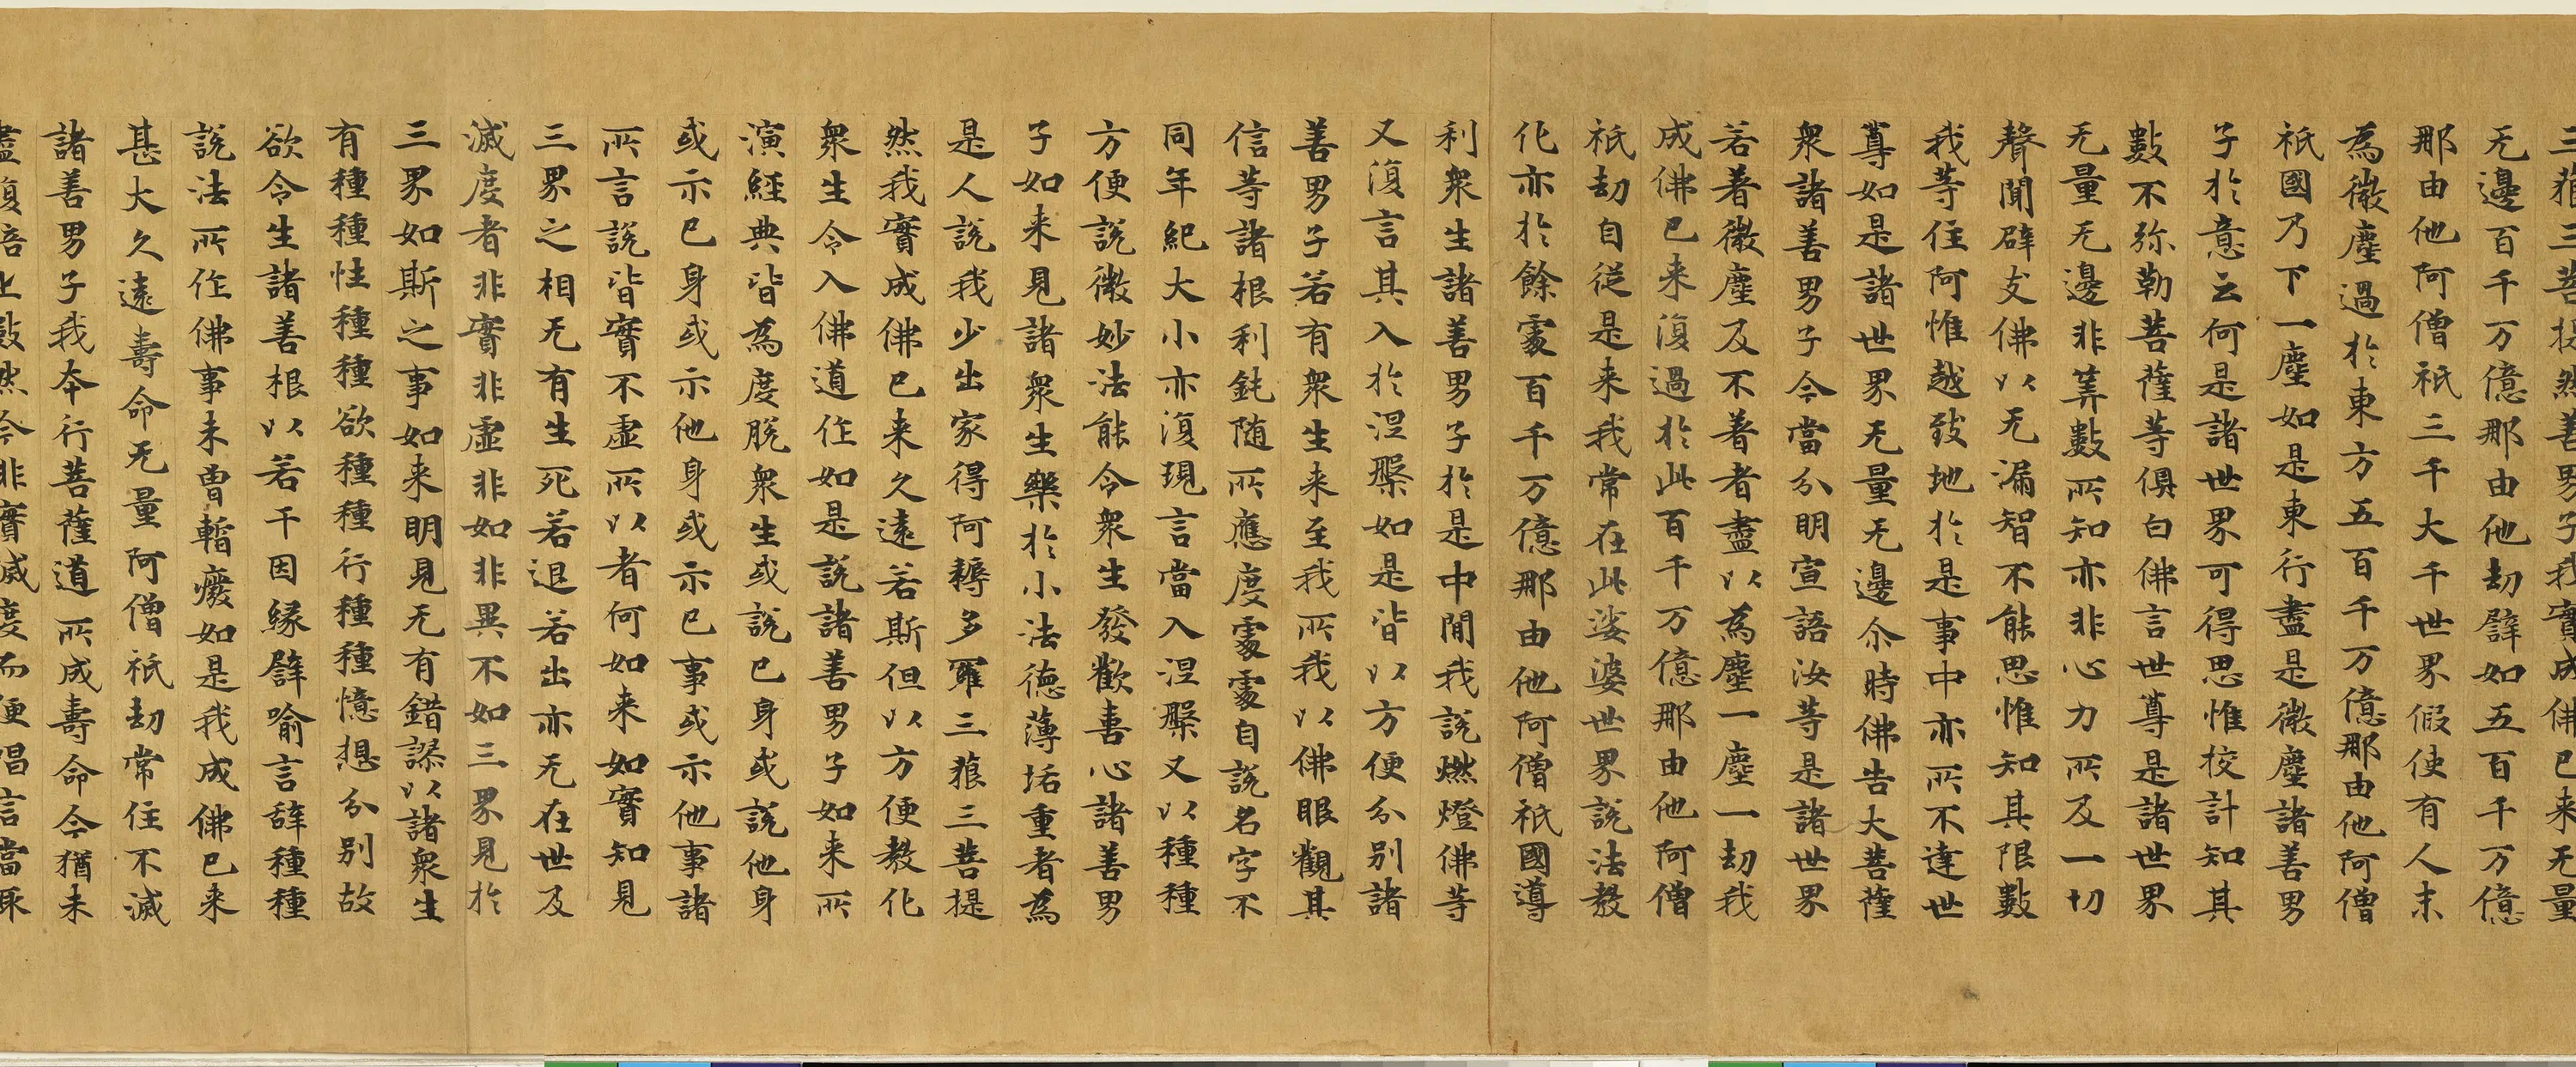 三藐三菩提然善男子我實成佛已来无量
无邊百千万億那由他劫譬如五百千万億
那由他阿僧祇三千大千世界假使有人末
為微塵過於東方五百千万億那由他阿僧
祇國乃下一塵如是東行盡是微塵諸善男
子於意云何是諸世界可得思惟校計知其
數不弥勒菩薩等俱白佛言世尊是諸世界
无量无邊非筭數所知亦非心力所及一切
聲聞辟支佛以无漏智不能思惟知其限數
我等住阿惟越致地於是事中亦所不達世
尊如是諸世界无量无邊尒時佛告大菩薩
衆諸善男子今當分明宣語汝等是諸世界
若著微塵及不著者盡以為塵一塵一劫我
成佛已来復過於此百千万億那由他阿僧
祇劫自従是来我常在此娑婆世界説法教
化亦於餘處百千万億那由他阿僧祇國導
利衆生諸善男子於是中閒我説燃燈佛等
又復言其入於涅槃如是皆以方便分別諸
善男子若有衆生来至我所我以佛眼觀其
信等諸根利鈍随所應度處處自説名字不
同年紀大小亦復現言當入涅槃又以種種
方便説微妙法能令衆生發歡喜心諸善男
子如来見諸衆生樂於小法徳薄垢重者為
是人説我少出家得阿耨多羅三藐三菩提
然我實成佛已来久遠若斯但以方便教化
衆生令入佛道作如是説諸善男子如来所
演經典皆為度脱衆生或説已身或説他身
或示已身或示他身或示已事或示他事諸
所言説皆實不虚所以者何如来如實知見
三界之相无有生死若退若出亦无在世及
滅度者非實非虚非如非異不如三界見於
三界如斯之事如来明見无有錯謬以諸衆生
有種種性種種欲種種行種種憶想分別故
欲令生諸善根以若干因緣譬喻言辞種種
説法所作佛事未曾暫癈如是我成佛已来
甚大久遠壽命无量阿僧祇劫常住不滅
諸善男子我本行菩薩道所成壽命今猶未
盡復倍上數然今非實滅度而便唱言當取